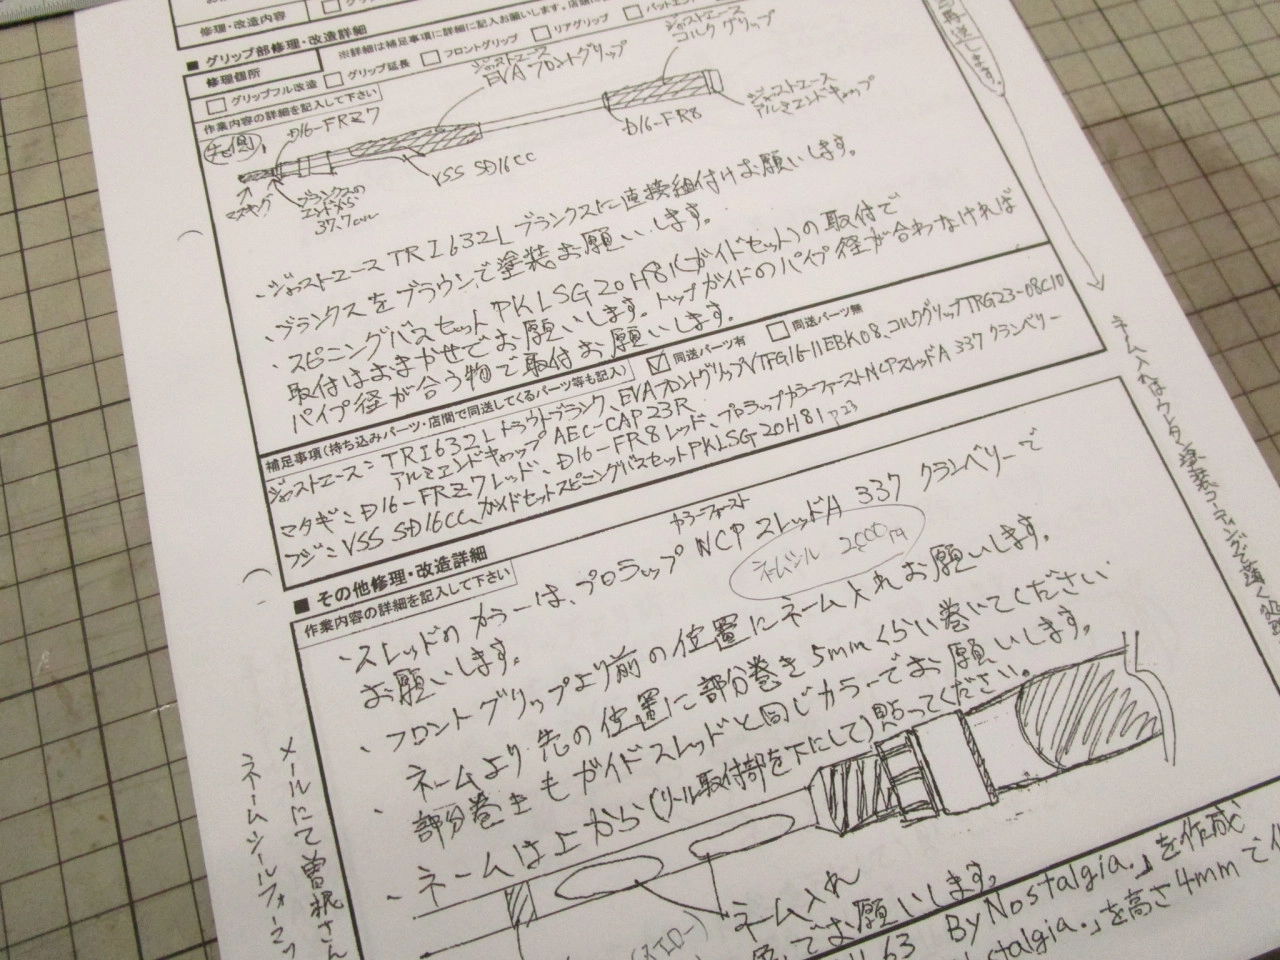 修理・改造内容
■ グリップ部修理・改造詳細
修理個所
※詳細は補足事項に詳細に記入お願いします。
グリップフル改造 グリップ延長 フロントグリップ リアグリップ
作業内容の詳細を記入して下さい
D16-FRZ7
ジャストエース
EVAフロントグリップ
ジャストエース
コルクグリップ
ジャストエース
アルミエンドキャップ
D16-FR8
VSS SD16CC
ブランクスの
エンドから
37.7cm
・ジャストエース TRI632L ブランクストに直接組付けお願いします。
ブランクスをブラウンで塗装お願いします。
・スピニングバスセット PKLSG20H81(ガイドセット)の取付で
取付はおまかせでお願いします。トップガイドのパイプ径が合わなければ
パイプ径が合う物で取付お願いします。
補足事項(持ち込みパーツ・店間で同送してくるパーツ等も記入)
同送パーツ有 同送パーツ無
ジャストエース: TRI632Lトラウトブランク、EVAフロントグリップVTFG16-11EBK08、コルクグリップTRG23-08C10
アルミエンドキャップ AEC-CAP23R
マタギ: D16-FRZ7レッド、D16-FR8レッド、プロラップカラーファーストNCPスレッドA 337 クランベリー
フジ: VSS SD16CC、ガイドセットスピニングバスセットPKLSG20H81 P.23
■ その他修理・改造詳細
作業内容の詳細を記入して下さい
・スレッドのカラーは、プロラップ カラーファースト NCPスレッドA 337 クランベリーで
お願いします。
ネームシール 2,000円
・フロントグリップより前の位置にネーム入れお願いします。
・ネームより先の位置に部分巻き5mmくらい巻いてください
部分巻きもガイドスレッドと同じカラーでお願いします。
・ネームは上から(リール取付部を下にして)貼ってください。
ネーム入れ
でお願いします。
63 By Nostalgia.」を作成
stalgia.」を高さ4mmで
メールにて曽根さん
ネームシールフォーマッ
再送します。
ネーム入れはウレタン塗装コーティングで薄く